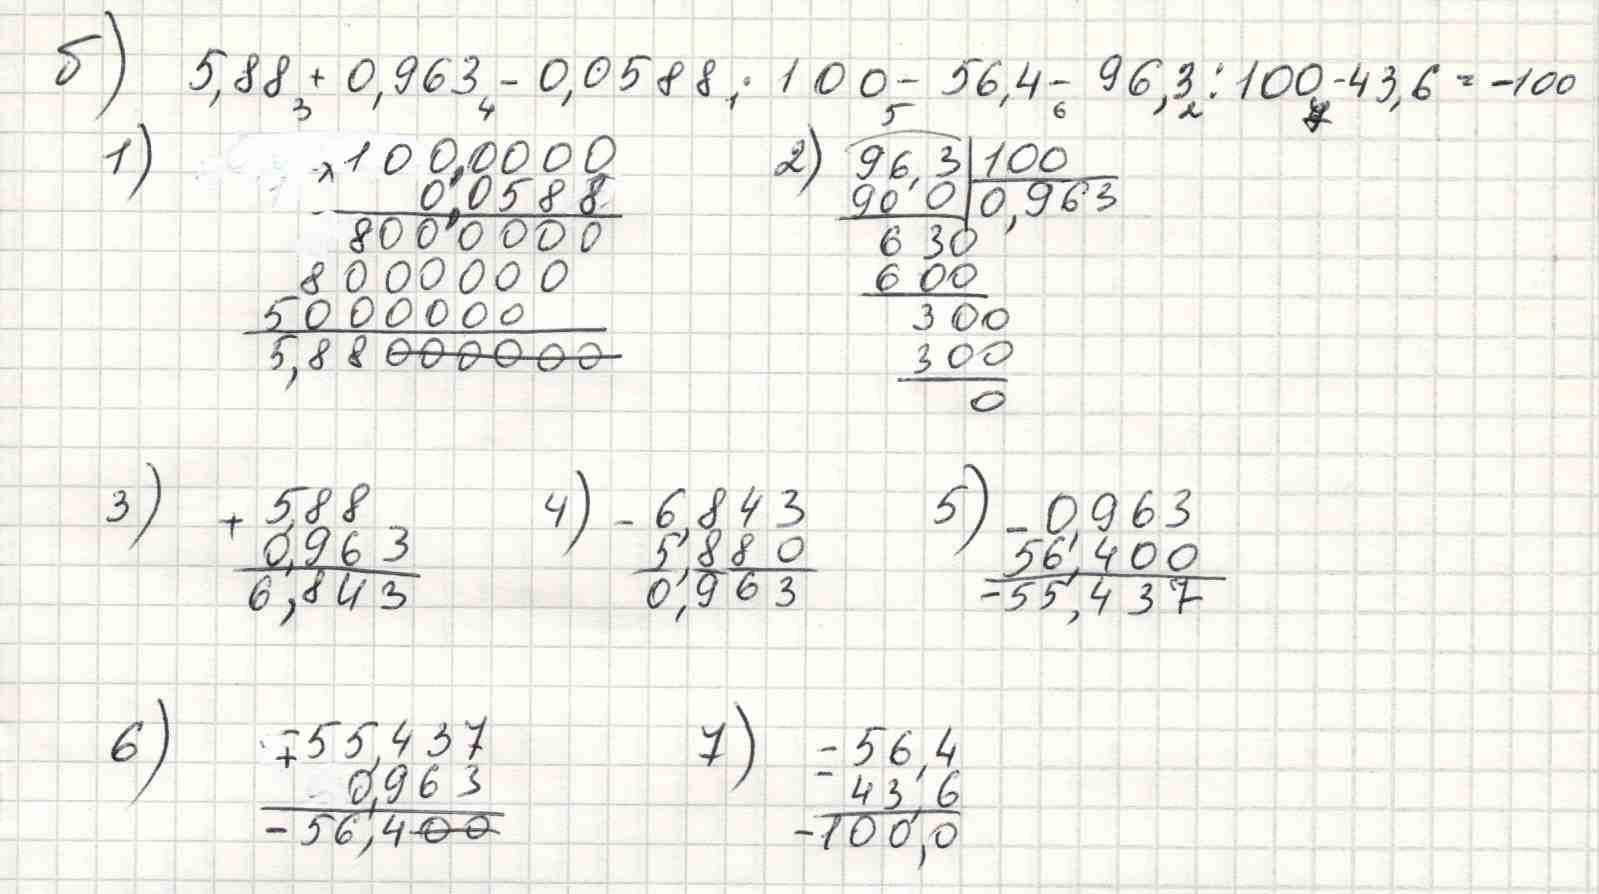 б) 5,88 + 0,963 - 0,0588 · 100 - 56,4 - 96,3 : 100 - 43,6 = -100
3 4 1 5 6 2 7
1) × 100,0000
0,0588
800 0000
8000000
5000000
5,88000000
2) 96,3 | 100
90 0 | 0,963
630
600
300
300
0
3) + 5,88
0,963
6,843
4) - 6,843
5,880
0,963
5) - 0,963
56,400
-55,437
6) + -55,437
0,963
-56,400
7) - -56,4
43,6
-100,0